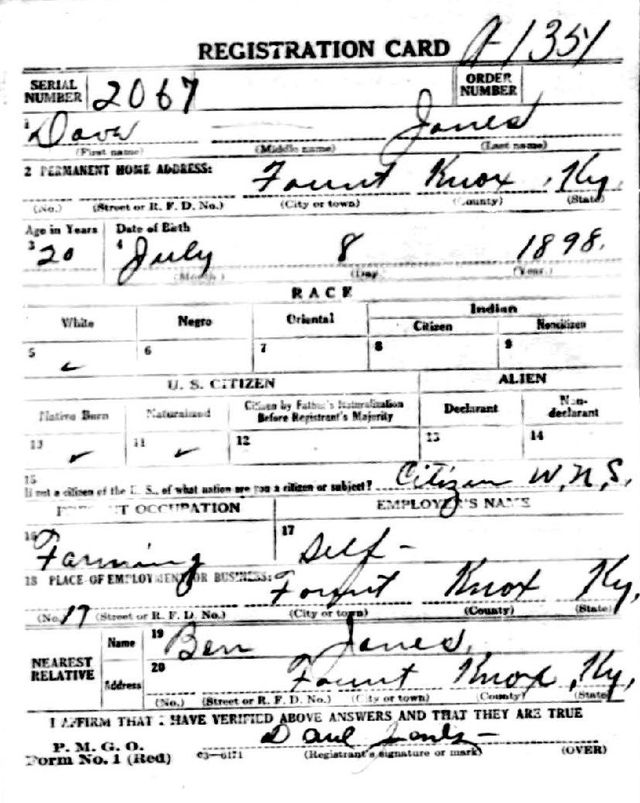 REGISTRATION CARD A-1351
SERIAL NUMBER 2067 ORDER NUMBER
1 Dave Jones
(First name) (Middle name) (Last name)
2 PERMANENT HOME ADDRESS: Fount Knox, Ky,
(No.) (Street or R. F. D. No.) (City or town) (County) (State)
Age in Years Date of Birth
3 20 4 July 8 1898.
(Month.) (Day (Year.)
RACE
White Negro Oriental Indian
Citizen Noncitizen
5 ✓ 6 7 8 9
U. S. CITIZEN ALIEN
Native Born Naturalized Citizen by Father's Naturalization Before Registrant's Majority Declarant Non-declarant
10 ✓ 11 ✓ 12 13 14
15 If not a citizen of the U. S., of what nation are you a citizen or subject? Citizen
PRESENT OCCUPATION EMPLOYER'S NAME
16 Farming 17 Self-
18 PLACE OF EMPLOYMENT OR BUSINESS: Fount Knox Ky,
(No. 17 (Street or R. F. D. No.) (City or town) (County) (State)
NEAREST RELATIVE Name 19 Ben Jones,
Address 20 Fount Knox, Ky,
(No.) (Street or R. F. D. No.) (City or town) (County) (State)
I AFFIRM THAT I HAVE VERIFIED ABOVE ANSWERS AND THAT THEY ARE TRUE
P. M. G. O.
Form No. 1 (Red) C3-6171 (Registrant's signature or mark) (OVER)